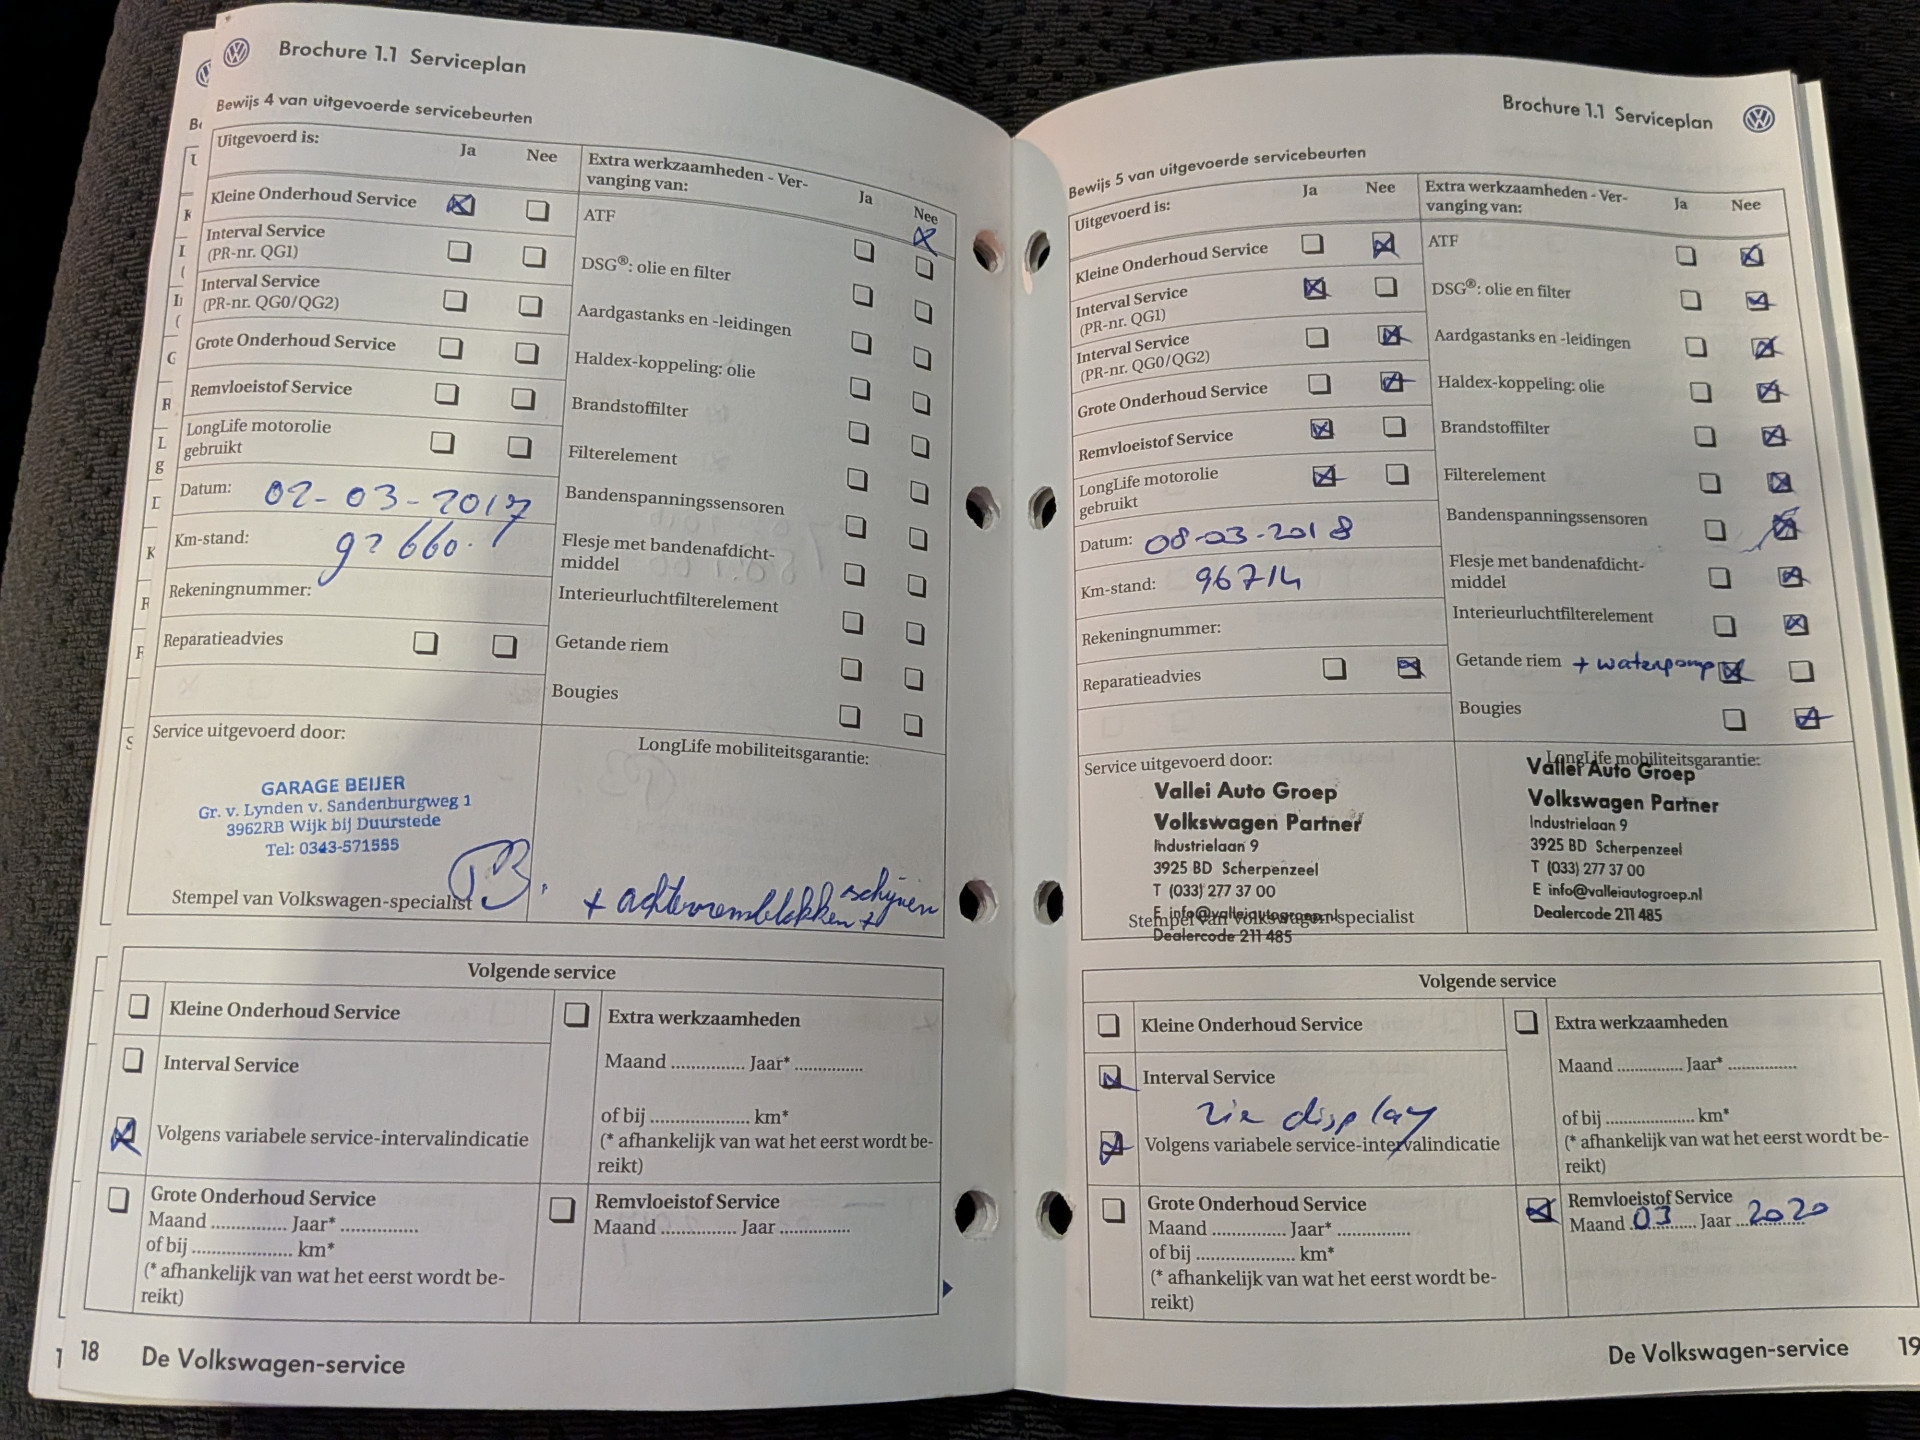 Brochure 1.1 Serviceplan
Bewijs 4 van uitgevoerde servicebeurten
Uitgevoerd is:
Ja Nee
Kleine Onderhoud Service
Interval Service
(PR-nr. QG1)
Interval Service
(PR-nr. QG0/QG2)
Grote Onderhoud Service
Remvloeistof Service
LongLife motorolie
gebruikt
Datum: 02-03-2017
Km-stand: 92 660.
Rekeningnummer:
Reparatieadvies
Extra werkzaamheden - Ver-
vanging van:
Ja Nee
ATF
DSG®: olie en filter
Aardgastanks en -leidingen
Haldex-koppeling: olie
Brandstoffilter
Filterelement
Bandenspanningssensoren
Flesje met bandenafdicht-
middel
Interieurluchtfilterelement
Getande riem
Bougies
Service uitgevoerd door:
GARAGE BEIJER
Gr. v. Lynden v. Sandenburgweg 1
3962RB Wijk bij Duurstede
Tel: 0343-571555
Stempel van Volkswagen-specialist
LongLife mobiliteitsgarantie:
+ achterremblokken + schijven
Volgende service
Kleine Onderhoud Service
Interval Service
Volgens variabele service-intervalindicatie
Grote Onderhoud Service
Maand ............... Jaar* ...............
of bij .................... km*
(* afhankelijk van wat het eerst wordt be-
reikt)
Extra werkzaamheden
Maand ............... Jaar* ..............
of bij .................... km*
(* afhankelijk van wat het eerst wordt be-
reikt)
Remvloeistof Service
Maand .............. Jaar ..............
18 De Volkswagen-service
Brochure 1.1 Serviceplan
Bewijs 5 van uitgevoerde servicebeurten
Uitgevoerd is:
Ja Nee
Kleine Onderhoud Service
Interval Service
(PR-nr. QG1)
Interval Service
(PR-nr. QG0/QG2)
Grote Onderhoud Service
Remvloeistof Service
LongLife motorolie
gebruikt
Datum: 08-03-2018
Km-stand: 96714
Rekeningnummer:
Reparatieadvies
Extra werkzaamheden - Ver-
vanging van:
Ja Nee
ATF
DSG®: olie en filter
Aardgastanks en -leidingen
Haldex-koppeling: olie
Brandstoffilter
Filterelement
Bandenspanningssensoren
Flesje met bandenafdicht-
middel
Interieurluchtfilterelement
Getande riem + waterpomp
Bougies
Service uitgevoerd door:
Vallei Auto Groep
Volkswagen Partner
Industrielaan 9
3925 BD Scherpenzeel
T (033) 277 37 00
E info@valleiautogroep.nl
Stempel van Volkswagen-specialist
Dealercode 211 485
LongLife mobiliteitsgarantie:
Vallei Auto Groep
Volkswagen Partner
Industrielaan 9
3925 BD Scherpenzeel
T (033) 277 37 00
E info@valleiautogroep.nl
Dealercode 211 485
Volgende service
Kleine Onderhoud Service
Interval Service
zie display
Volgens variabele service-intervalindicatie
Grote Onderhoud Service
Maand ............... Jaar* ...............
of bij .................... km*
(* afhankelijk van wat het eerst wordt be-
reikt)
Extra werkzaamheden
Maand .............. Jaar* ..............
of bij .................... km*
(* afhankelijk van wat het eerst wordt be-
reikt)
Remvloeistof Service
Maand 03 Jaar 2020
De Volkswagen-service 19